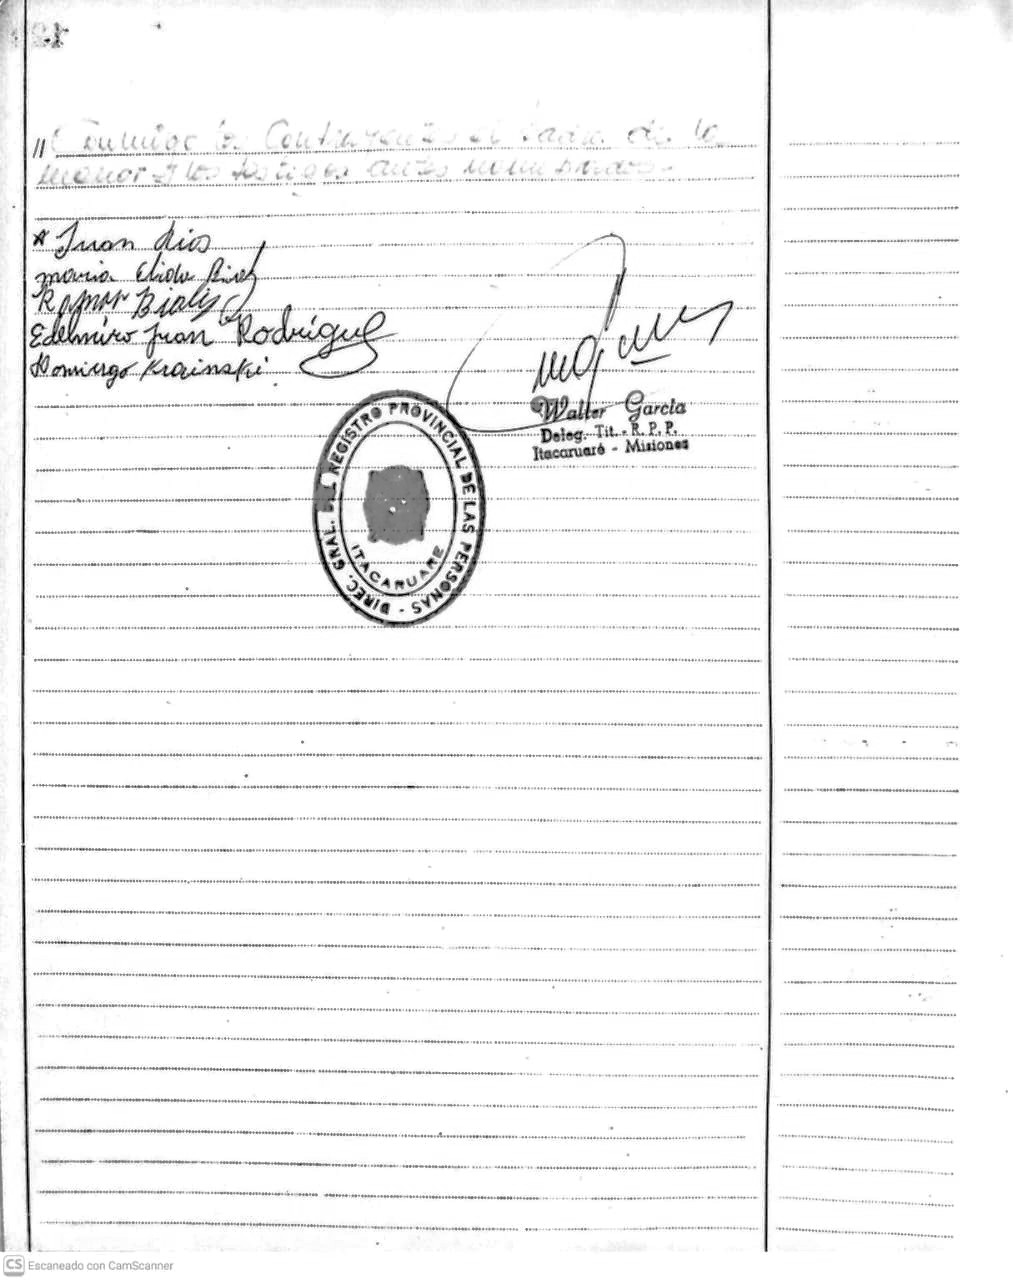 // Conmigo los Contrayentes el Padre de la
menor y los testigos antes nombrados.-
Juan Rios
maria Elida
Ramon
Edelmiro Juan Rodríguez
Domingo Krainski
Walter García
Deleg. Tit. - R. P. P.
Itacaruaré - Misiones
DIREC. GRAL. DEL REGISTRO PROVINCIAL DE LAS PERSONAS -
ITACARUARE
CS Escaneado con CamScanner